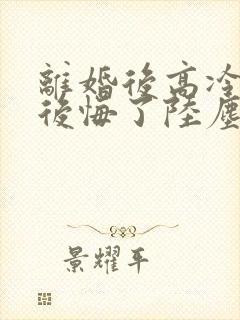 離婚後高冷
後悔了陸塵
景耀平